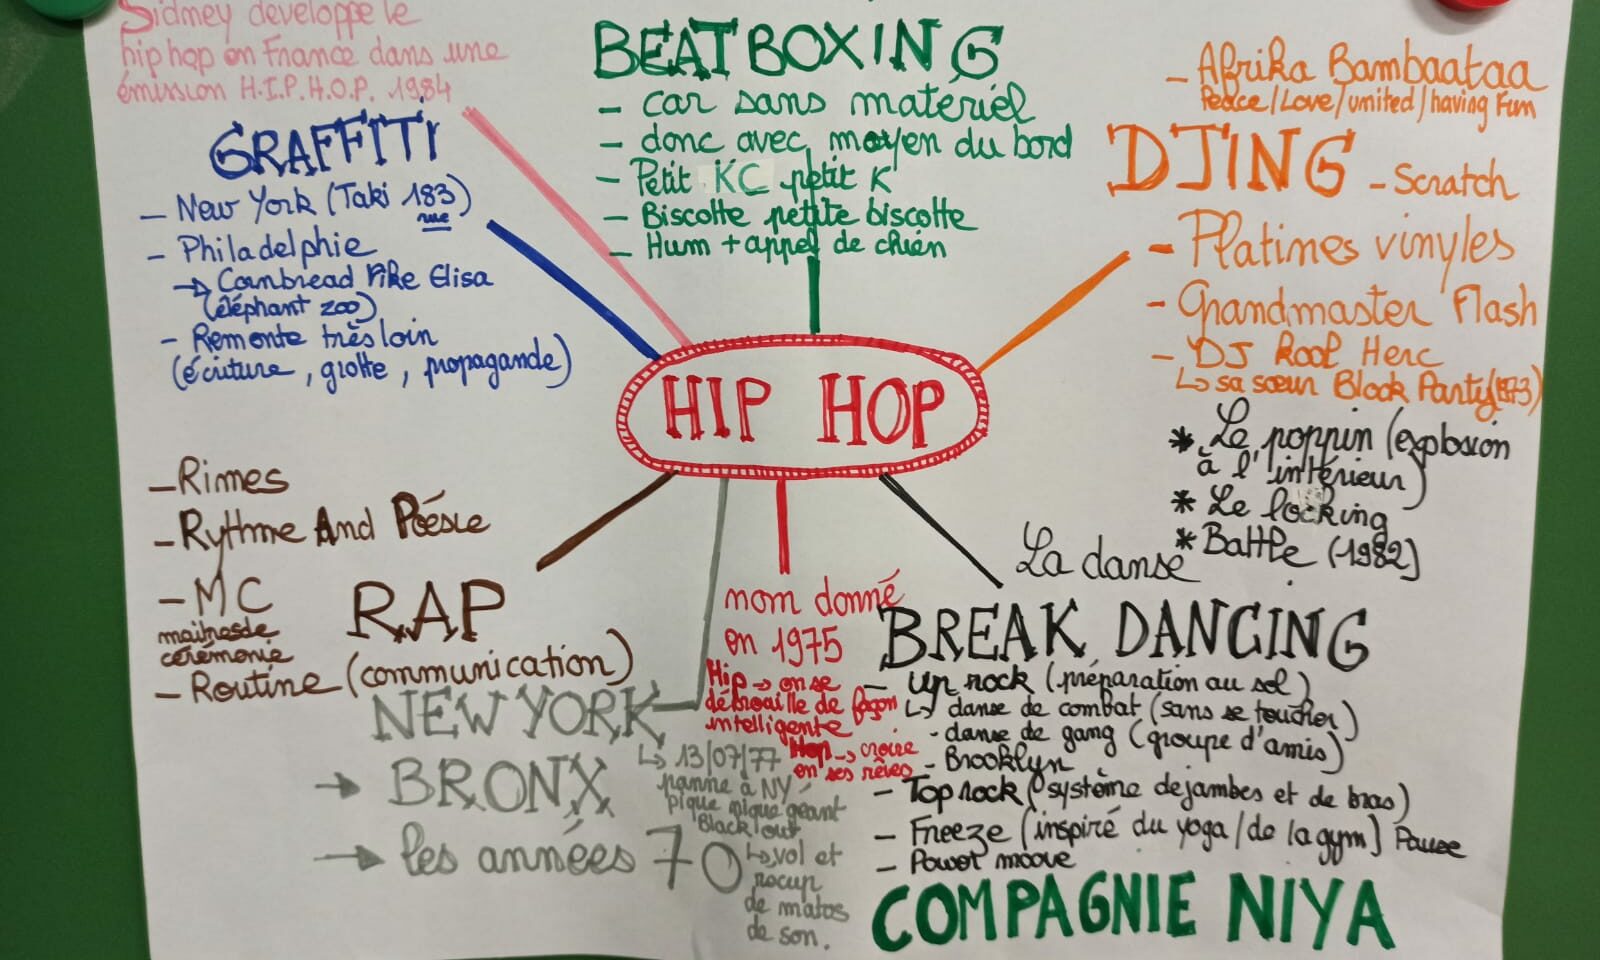 Sidney développe le
hip hop en France dans une
émission H.I.P.H.O.P. 1984
GRAFFITI
- New York (Taki 183)
rue
- Philadelphie
→ Cornbread Like Elisa
(éléphant zoo)
- Remonte très loin
(écriture, grotte, propagande)
BEATBOXING
- car sans matériel
- donc avec moyen du bord
- Petit KC petit K
- Biscotte petite biscotte
- Hum + appel de chien
- Afrika Bambaataa
Peace/Love/united/having Fun
DJING - Scratch
- Platines vinyles
- Grandmaster Flash
- DJ Kool Herc
↳ sa sœur Block Party (1973)
HIP HOP
* Le poppin (explosion
à l'intérieur)
* Le locking
* Battle (1982)
La danse
BREAK DANCING
- Up rock (préparation au sol)
↳ danse de combat (sans se toucher)
- danse de gang (groupe d'amis)
- Brooklyn
- Top rock (système de jambes et de bras)
- Freeze (inspiré du yoga/de la gym) Pause
- Power moove
COMPAGNIE NIYA
nom donné
en 1975
Hip → on se
débrouille de façon
intelligente
Hop → croire
en ses rêves
- Rimes
- Rythme And Poésie
- MC
maîtres de
cérémonie
RAP
- Routine (communication)
NEW YORK
→ BRONX
→ les années 70
↳ 13/07/77
panne à NY
pique nique géant
Black out
↳ vol et
récup
de matos
de son.